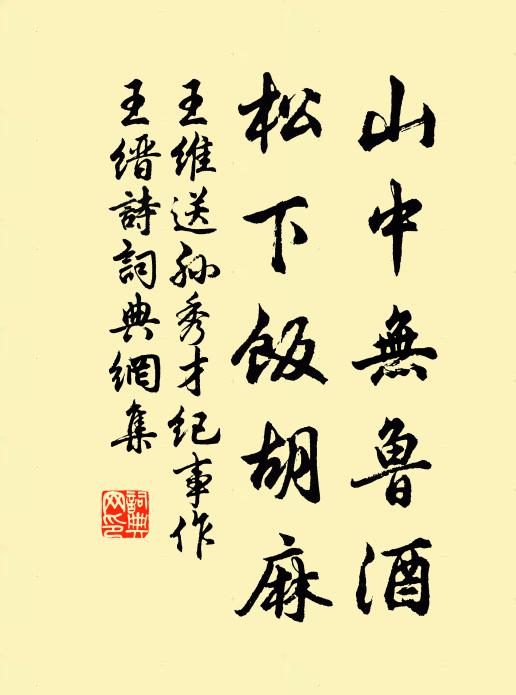 山中無魯酒
松下飯胡麻
王維送孙秀才纪事作
王缙詩詞典網集
詞典
网印